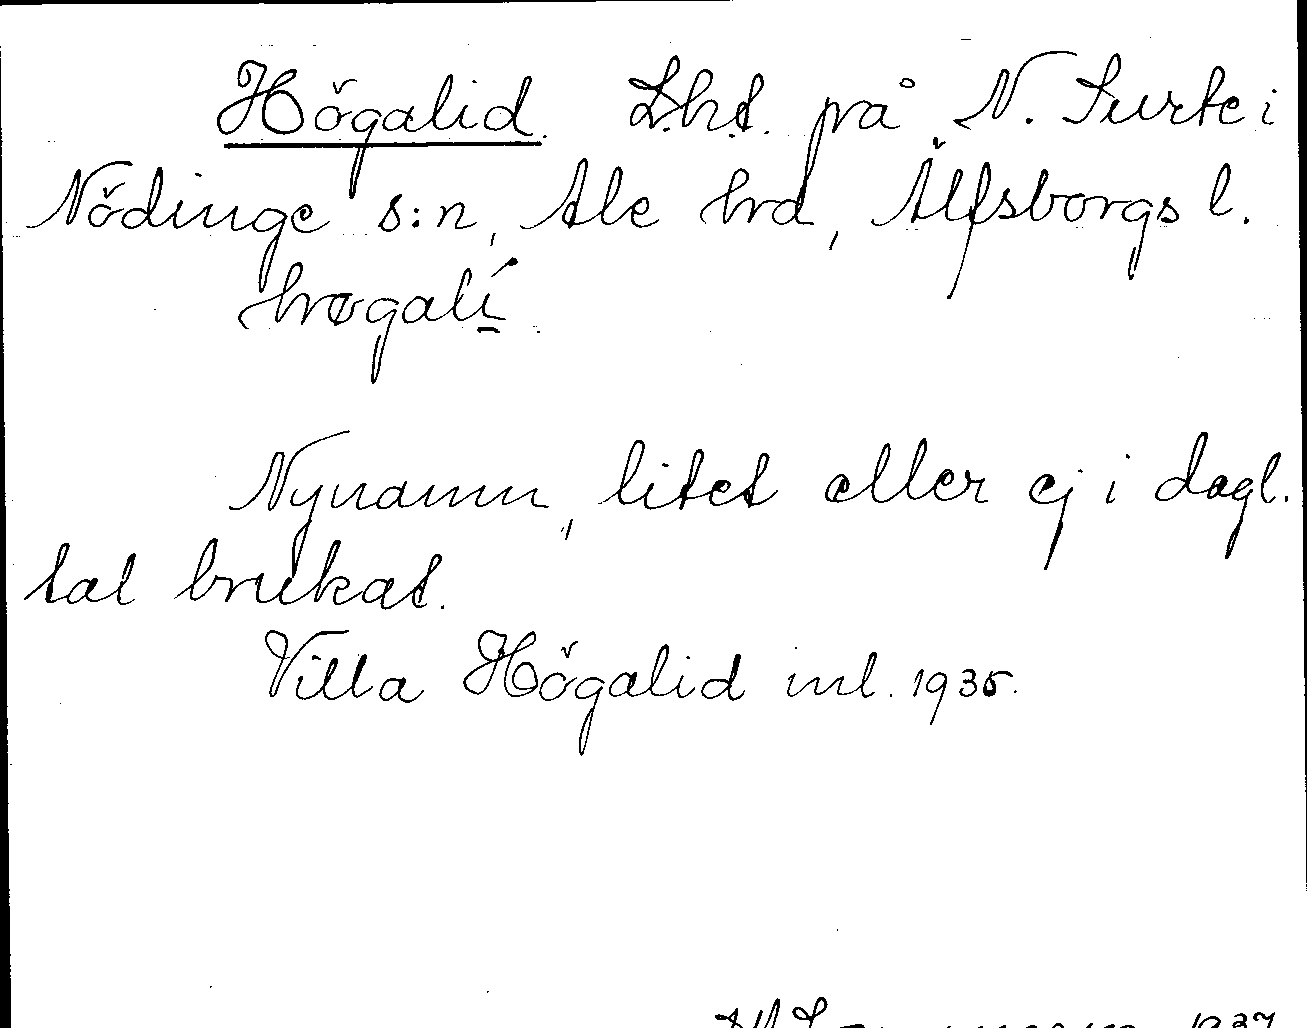 Högalid. Lht. på N. Surte i
Nödinge s:n, Ale hd, Älfsborgs l.
høgalí.
Nynamn, litet eller ej i dagl.
tal brukat.
Villa Högalid inl. 1935.
1937